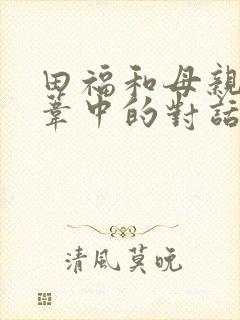 田福和母親
葦中的對話
清風莫晚